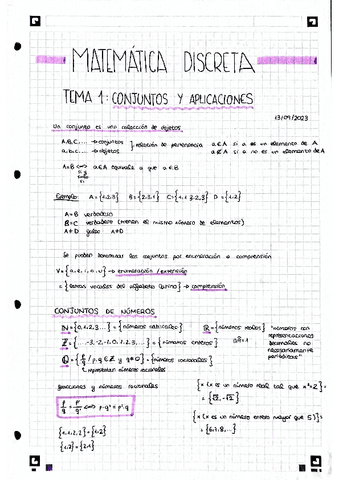 MATEMÁTICA DISCRETA
TEMA 1: CONJUNTOS Y APLICACIONES
13/09/2023
Un conjunto es una colección de objetos
A,B,C,... → conjuntos
a,b,c,... → objetos
relación de pertenencia
a∈A si a es un elemento de A
a∉A si a no es un elemento de A
A=B ⟺ a∈A equivale a que a∈B
Ejemplo: A={1,2,3} B={2,3,1} C={1,1,3,2,3} D={1,2}
A=B verdadero
B=C verdadero (tienen el mismo número de elementos)
A=D falso A≠D
Se pueden denominar los conjuntos por enumeración o comprensión
V={a,e,i,o,u} → enumeración / extensión
={letras vocales del alfabeto latino} → comprensión
CONJUNTOS DE NÚMEROS
ℕ={0,1,2,3...} = {números naturales}
ℝ={números reales}
"números con representaciones decimales no necesariamente periódicas"
ℤ={...-3,-2,-1,0,1,2,3...} = {números enteros}
ℚ={p/q / p,q∈ℤ y q≠0} = {números racionales}
representan números racionales
fracciones y números racionales
p/q = p'/q' ⟺ p·q'=p'·q
{x | x es un número real tal que x²=2} =
={√2,-√2}
{x | x es un número entero mayor que 5} =
={6,7,8,...}
{1,1,2,2}={1,2}
{1,2}={2,1}